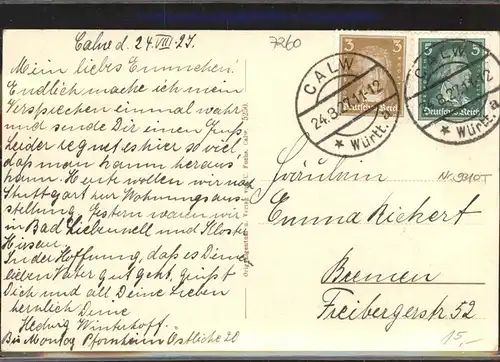 Calw d. 24.VIII.27.
Mein liebes Emmchen!
Endlich mache ich mein
Versprechen einmal wahr
und sende Dir einen Gruß
Leider regnet es hier so viel
daß man kaum heraus
kann. Heute wollen wir nach
Stuttgart zur Wohnungsaus=
stellung. Gestern waren wir
in Bad Liebenzell und Kloster
Hirsau.
In der Hoffnung, daß es Deinem
lieben Vater gut geht, grüßt
Dich und all Deine Lieben
herzlich Deine
Hedwig Winterhoff.
Bis Montag Pforzheim Östliche 20
7260
3 3
Deutsches Reich
5 5
Deutsches Reich
CALW
24.8.27.11-12
★ Württ.
CALW
8.27.11-12
★ Württ.
Fräulein
Nr. 9310T
Emma Reichert
Bremen
Freibergerstr 52
15,-